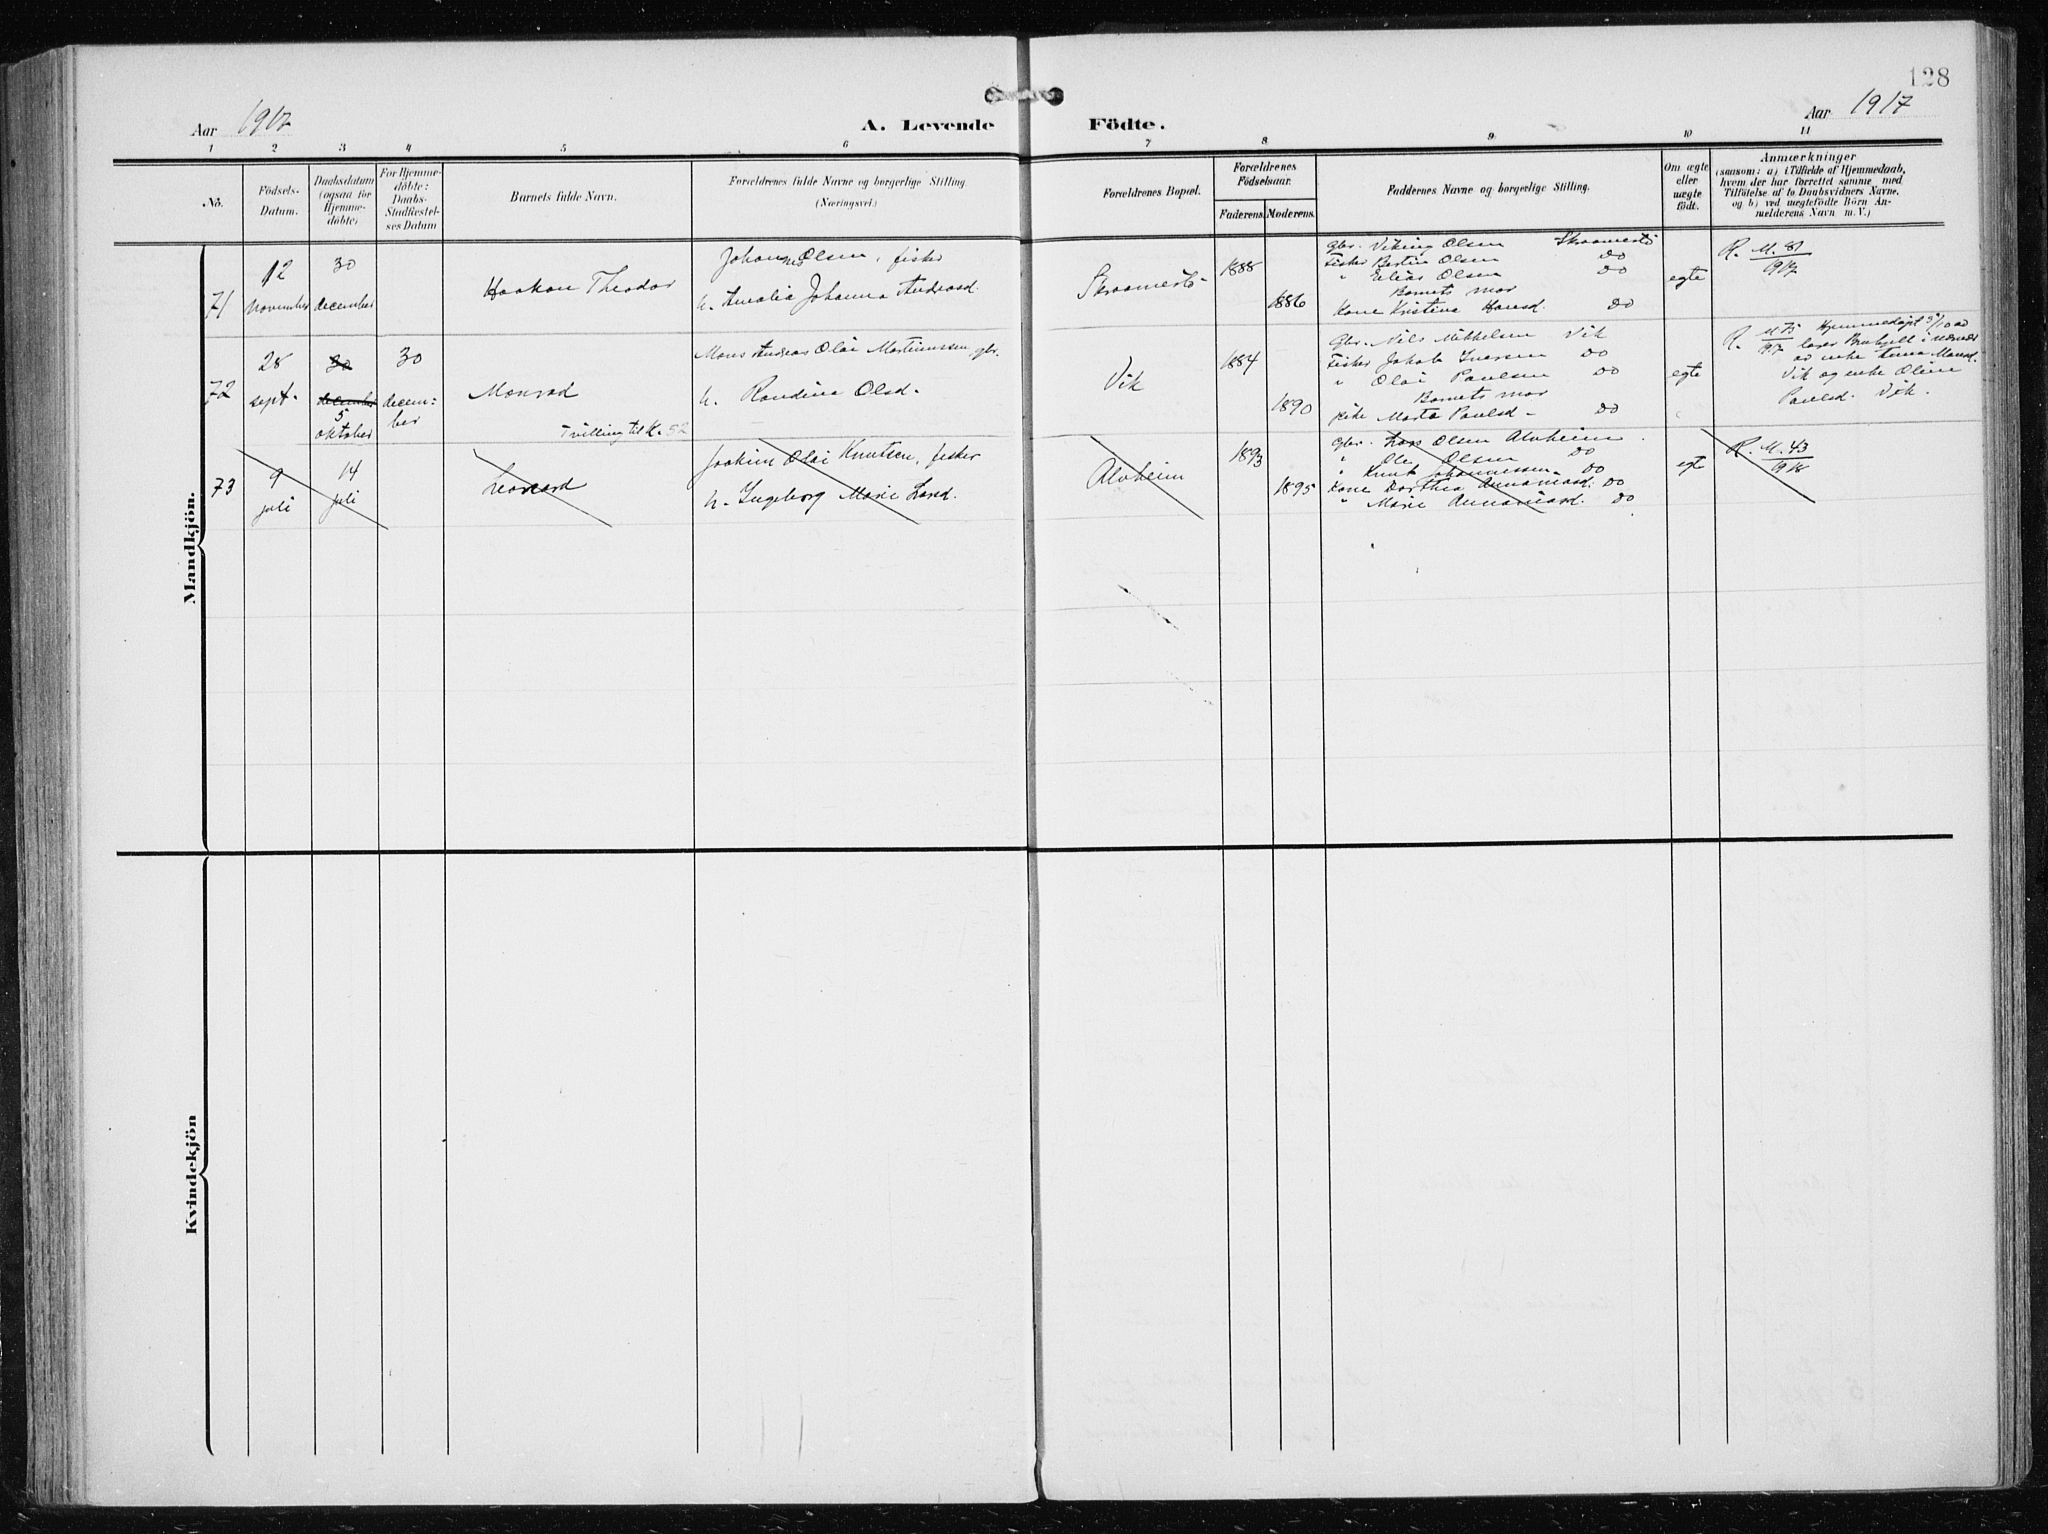 128
Aar 1917
A. Levende Födte.
Aar 1917
1 2 3 4 5 6 7 8 9 10 11
No.
Födsels-
Datum.
Daabsdatum
(ogsaa for
Hjemme-
döbte)
For Hjemme-
döbte:
Daabs-
Stadfæstel-
ses Datum
Barnets fulde Navn.
Forældrenes fulde Navne og borgerlige Stilling
(Næringsvei.)
Forældrenes Bopæl.
Forældrenes
Födselsaar.
Faderens.
Moderens.
Faddernes Navne og borgerlige Stilling.
Om ægte
eller
uægte
födt.
Anmærkninger
(saasom: a) i Tilfælde af Hjemmedaab,
hvem der har forrettet samme med
Tilföielse af to Daabsvidners Navne,
og b) ved uægtefödte Börn An-
melderens Navn m. V.)
Mandkjön.
71
12
november
30
december
Haakon Theodor
Johannes Olsen, fisker
h. Amalia Johanna Andreasd.
Skraamestö
1888
1886
Gbr. Viking Olsen Skraamestö
Fisker Bertin Olsen Do
" Eelias Olsen Do
Barnets mor
Kone Kristina Hansd. Do
egte
R. M. 81
1917
72
28
sept.
30
december
5
oktober
30
decem-
ber
Monrad
Tvilling til K. 52
Mons Andreas Olai Martinussen gbr.
h. Randina Olsd.
Vik
1884
1890
Gbr. Nils Mikkelsen Vik
Fisker Jakob Ivarsen Do
" Olai Paulsen Do
Barnets mor
Pike Marta Paulsd. Do
egte
R. M. 75
1917
Hjemmedøpt 5/10 av
lærer i nærvær
av enke Anna Monsd.
Vik og enke Oline
Paulsd. Vik.
73
9
juli
14
juli
Leonard
Joakim Olai Knutsen, fisker
h. Ingeborg Marie Larsd.
Alvheim
1893
1895
Gbr. Lars Olsen Alvheim
" Ole Olsen Do
" Knut Johannessen Do
Kone Dorthea Annaniasd. Do
" Marie Annaniasd. Do
egte
R. M. 43
1918
Kvindekjön